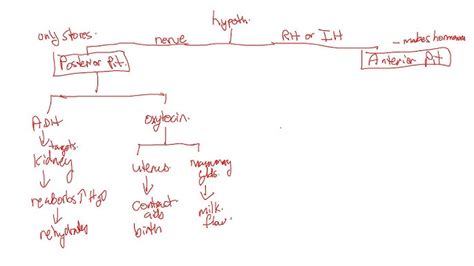 hypoth.
only stores.
nerve
RH or IH
makes hormones
Posterior Pit.
Anterior Pit
ADH
oxytocin.
targets
kidney
uterus
mammary
glds.
reabsorbs ↑ H2O
contract
milk
rehydrates
aids
flow.
birth